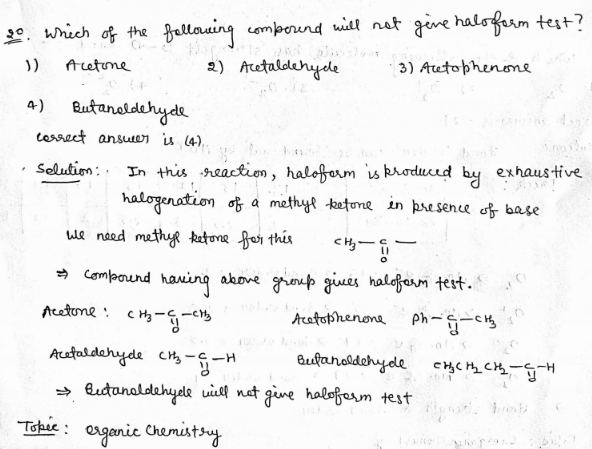 20. Which of the following compound will not give haloform test?
1) Acetone 2) Acetaldehyde 3) Acetophenone
4) Butanaldehyde
correct answer is (4)
Solution: In this reaction, haloform is produced by exhaustive
halogenation of a methyl ketone in presence of base
we need methyl ketone for this CH3-C-
O
⇒ compound having above group gives haloform test.
Acetone: CH3-C-CH3 Acetophenone Ph-C-CH3
O O
Acetaldehyde CH3-C-H Butanaldehyde CH3CH2CH2-C-H
O O
⇒ Butanaldehyde will not give haloform test
Topic: organic Chemistry